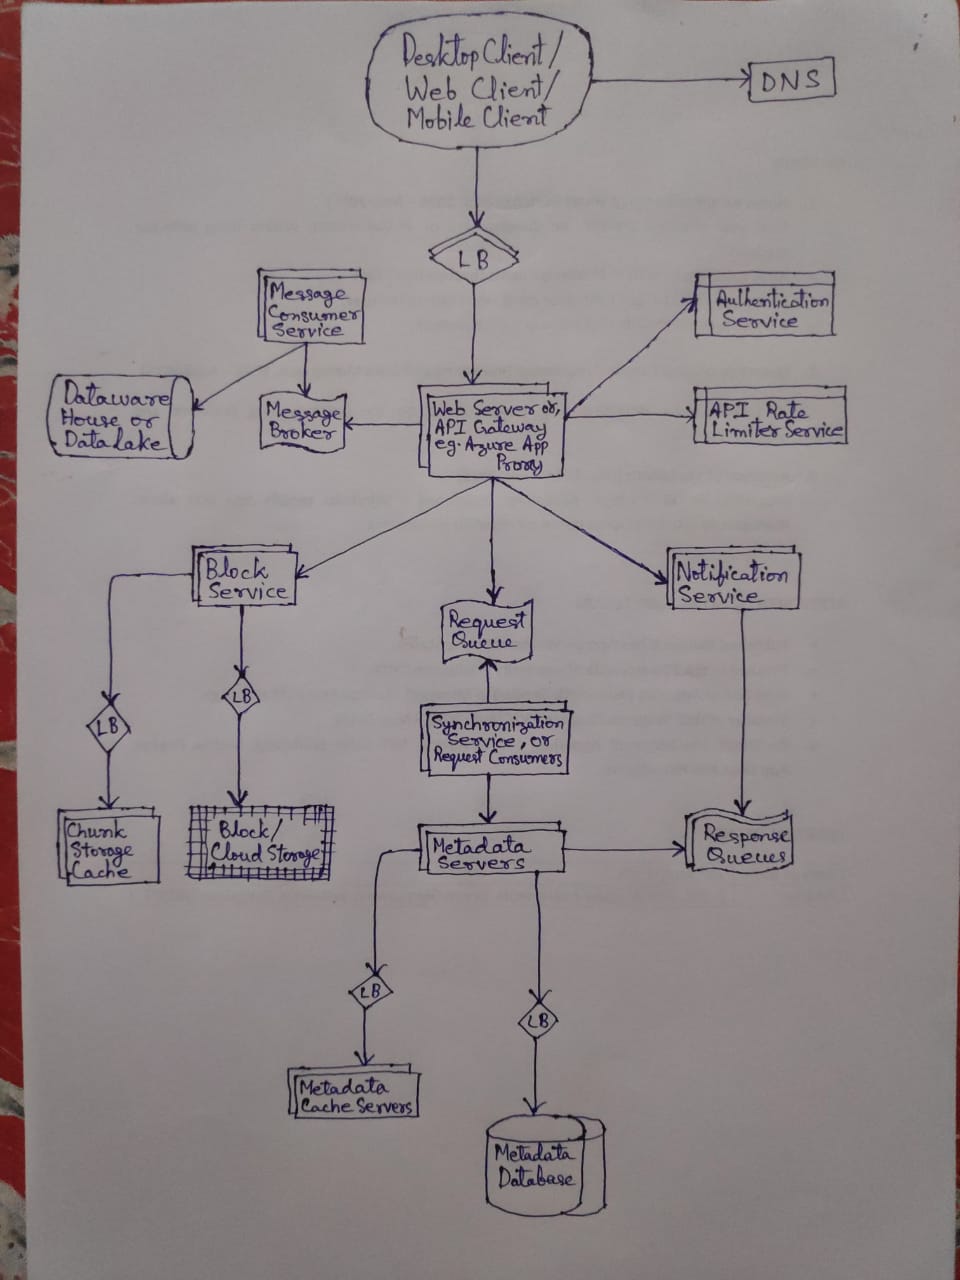 Desktop Client/
Web Client/
Mobile Client
DNS
LB
Message
Consumer
Service
Authentication
Service
Dataware
House or
Data Lake
Message
Broker
Web Server or,
API Gateway
eg. Azure App
Proxy
API Rate
Limiter Service
Block
Service
Notification
Service
Request
Queue
LB
LB
Synchronization
Service, or
Request Consumers
Chunk
Storage
Cache
Block/
Cloud Storage
Metadata
Servers
Response
Queues
LB
LB
Metadata
Cache Servers
Metadata
Database